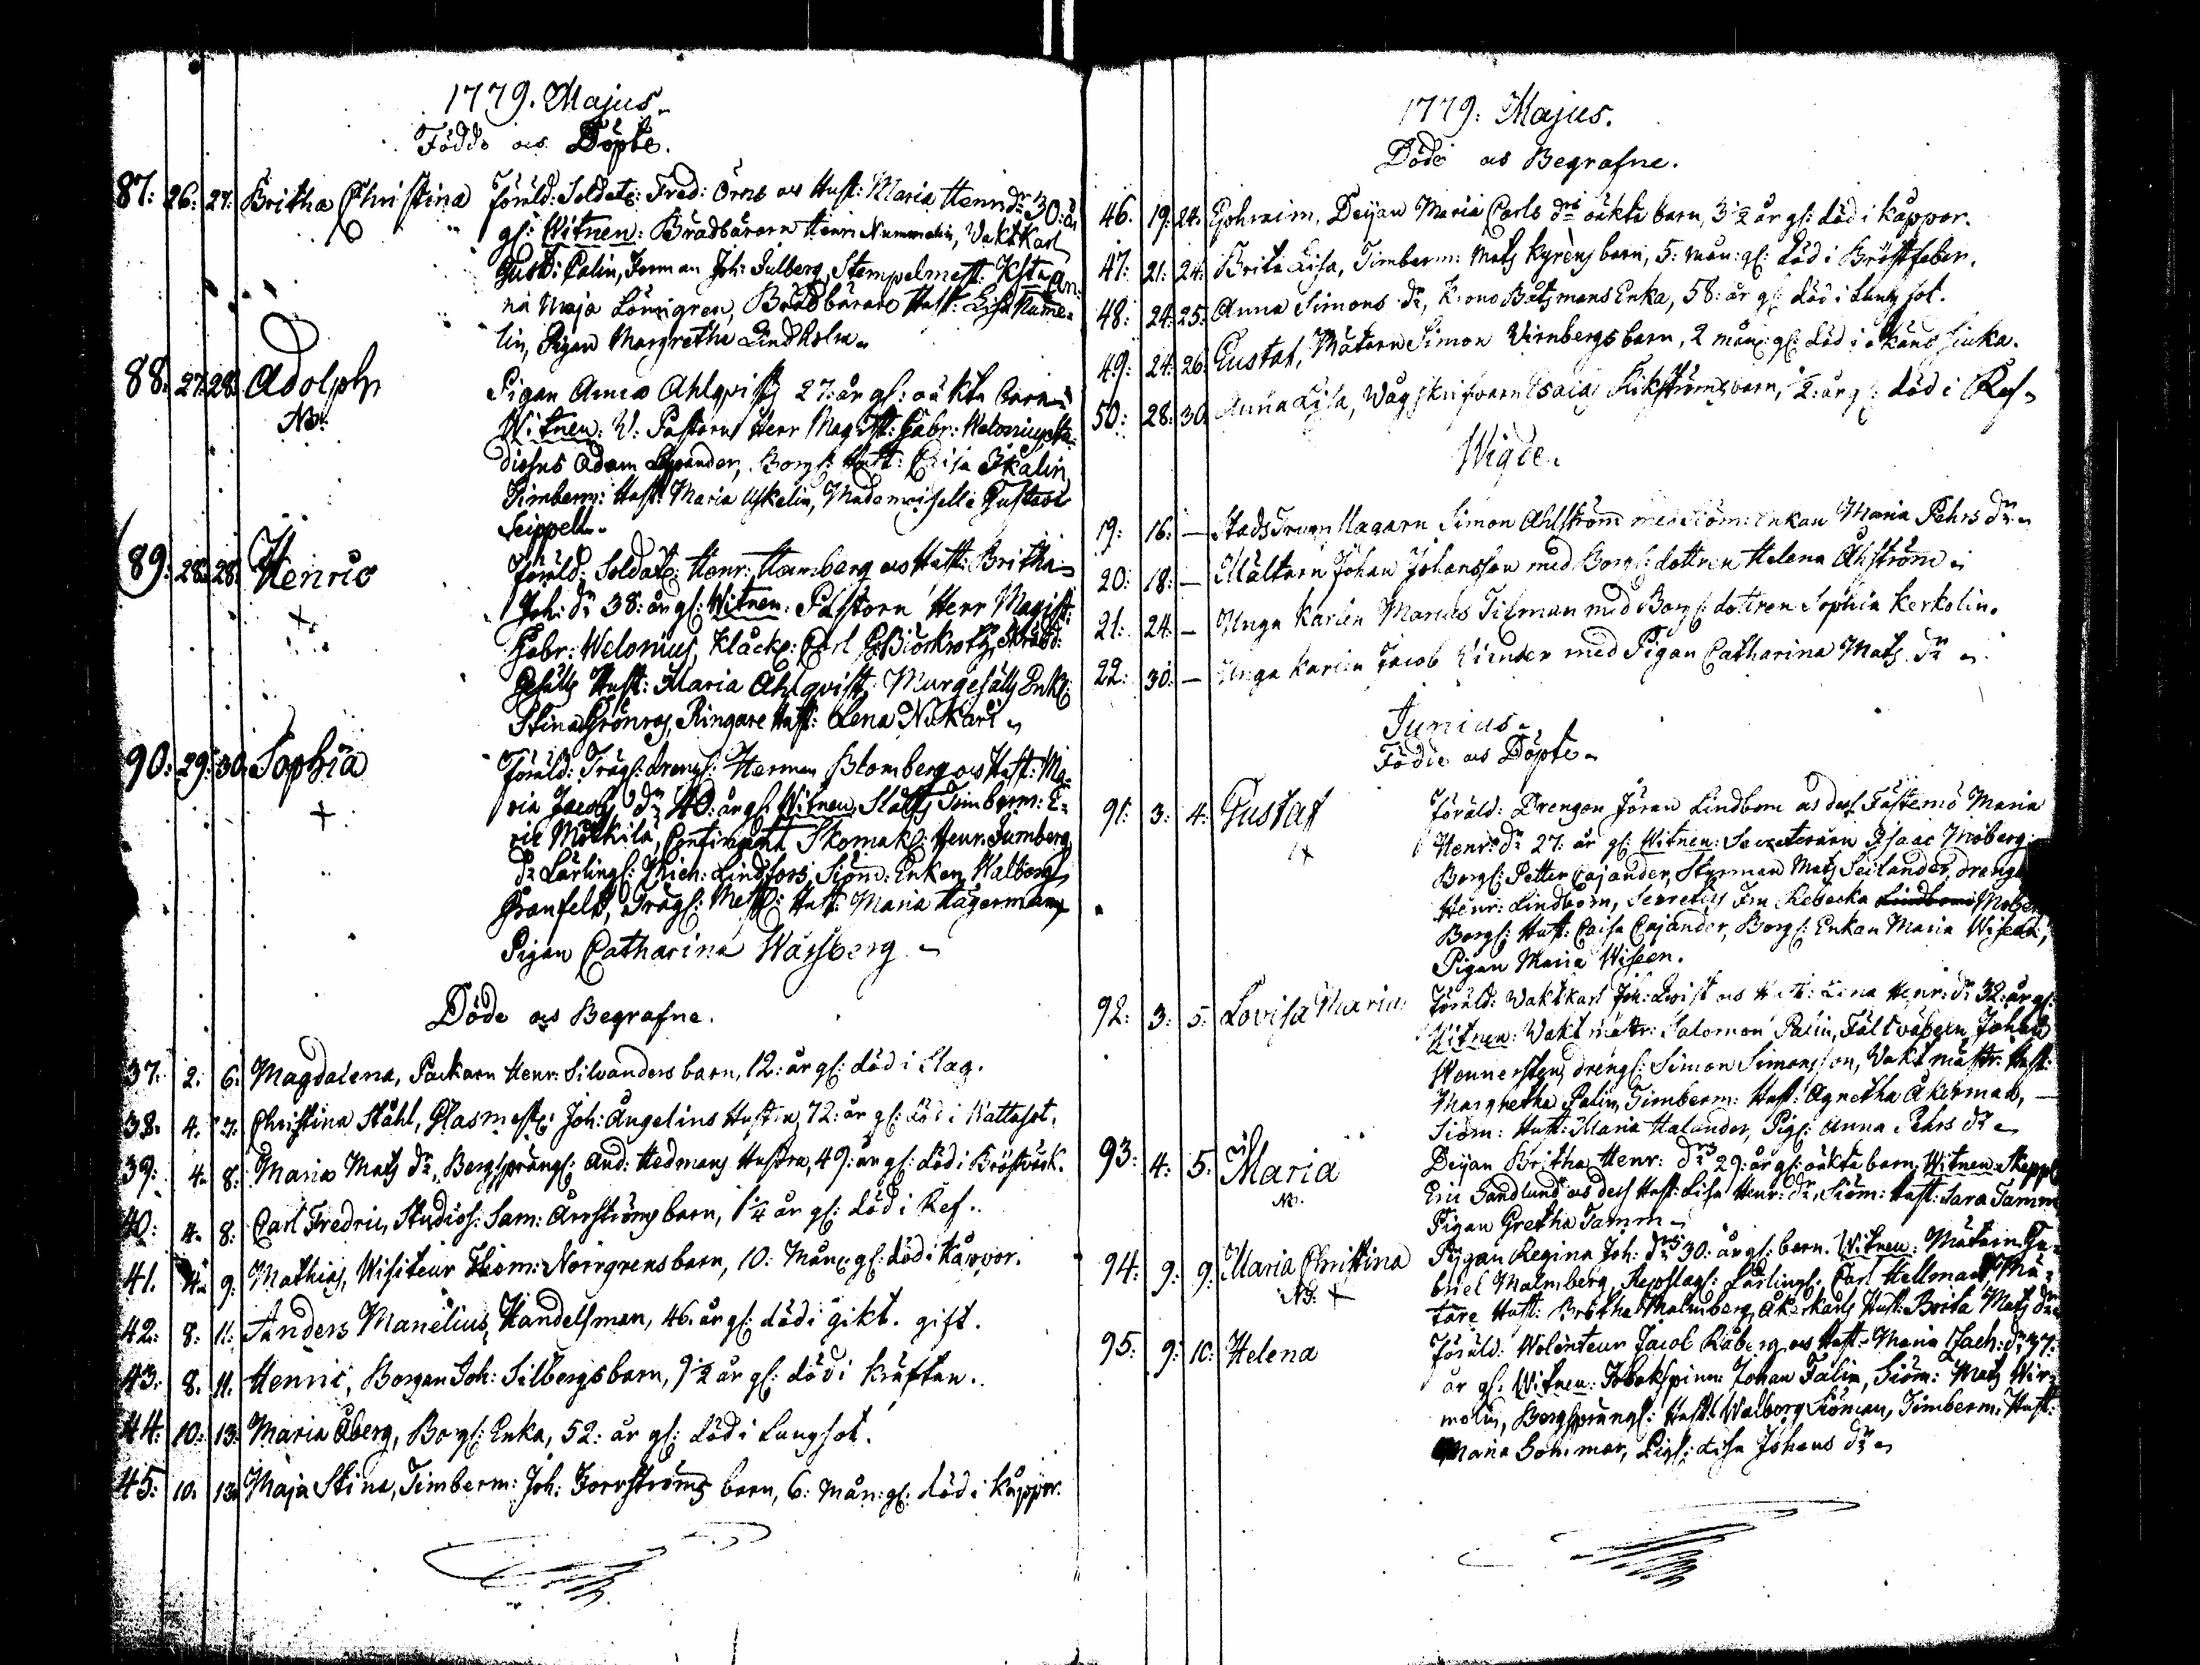 1779. Majus.
Födde och Döpte.
87: 26: 27: Britha Christina Föräld: Soldat: Fred: Örns och Hust: Maria Henr: dr 30: år
gl: Witnen: Brädbäraren Henr: Nummelin, Vaktkarl
Gust: Palin, Forman Joh: Julberg, Stempelmest: Hstr An-
na Maja Lönngren, Brädbärare Hust: Lisa Numme-
lin, Pigan Margretha Lindholm
88: 27: 28: Adolph Pigan Anna Ahlqvists 27: år gl: oäkta barn
NB. Witnen: V: Pastorn Herr Magist: Gabr: Welonius, Stu-
diosus Adam Cajander, Borgl: Hust: Caisa Ikalin,
Timberm: Hust: Maria Askelin, Mademoiselle Gustava
Seippell
89: 28: 28: Henric Föräld: Soldat: Henr: Hamberg och Hust: Britha
+ Joh: dr 38: år gl: Witnen: Pastorn Herr Magist:
Gabr: Welonius, Klåck: Carl Biörkroth, Skrädd:
Gesälls Hust: Maria Ahlqvist, Murgesälls Enk:
Stina Grönros, Ringare Hust: Lena Nukari
90: 29: 30: Sophia Föräld: Trägl: drengl: Herman Blomberg och Hust: Ma-
+ ria Jacobs dr 40: år gl: Witnen: Slotts Timberm: E-
ric Mickila, Contingent Skomak: Henr: Sumberg
dr Lärlingl: Mich: Lindfors, Siöm: Enkan Walborg
Granfelt, Trägl: Mest: Hust: Maria Hagerman,
Pigan Catharina Wassberg
Döde och Begrafne.
37: 2: 6: Magdalena, Packarn Henr: Silvanders barn, 12: år gl: död i Slag.
38: 4: 7: Christina Ståhl, Glasmest: Joh: Ångelins Hustru, 72: år gl: död i Wattusot.
39: 4: 8: Maria Mats dr, Bergsprängl: And: Hedmans Hustru, 49: år gl: död i Bröstvärk.
40: 4: 8: Carl Fredric, Studios: Sam: Arrströms barn, 1 1/4 år gl: död i Ref.
41. 4: 9: Mathias, Wisiteur Thom: Norrgrens barn, 10: Mån: gl: död i Kåppor.
42: 8: 11: Anders Manelius, Handelsman, 46. år gl: död i gikt. gift.
43: 8. 11. Henric, Borgan Joh: Silbergs barn, 9 1/2 år gl: död i Kräftan.
44: 10: 13: Maria Åberg, Borgl: Enka, 52: år gl: död i Lungsot.
45: 10. 13: Maja Stina, Timberm: Joh: Forsströms barn, 6: Mån: gl: död i Kåppor.
1779: Majus.
Döde och Begrafne.
46. 19: 24: Ephraim, Deijan Maria Carls drs oäkta barn, 3 1/2 år gl: död i Kåppor.
47: 21: 24: Brita Lisa, Timberm: Mats Kyréns barn, 5: mån: gl: död i Bröstfeber.
48: 24: 25: Anna Simons dr, Krono Båtsmans Enka, 58: år gl: död i Lungsot.
49: 24: 26: Gustaf, Mätarn Simon Virnbergs barn, 2 mån: gl: död i okänd siuka.
50: 28: 30. Anna Lisa, Vågskrifvarn Esaias Kikströms barn, 1/2: år gl: död i Ref
Wigde.
19: 16: — Stads Simon Ahlström med Siöm: Enkan Maria Pehrs dr
20: 18: — Mältarn Johan Johansson med Borgl: dottren Helena Åhström
21: 24: — Unga Karlen Marcus Tilman med Borgl: dottren Sophia Kerkolin.
22: 30: — Unga Karlen Jacob Winter med Pigan Catharina Mats dr
Junius.
Födde och Döpte
91: 3: 4: Gustaf Föräld: Drengen Jöran Lindbom och dess Fästemö Maria
+ Henr: dr 27: år gl: Witnen: Secreteraren Isaac Moberg
Borgl: Petter Cajander, Styrman Mats Seilander, dreng
Henr: Lindbom, Secretess Fru Rebecka Lindbom Moberg
Borgl: Hust: Caisa Cajander, Borgl: Enkan Maria Wiseen,
Pigan Maria Wiseen.
92: 3: 5: Lovisa Maria Föräld: Vaktkarl Joh: Qvist och Hust: Lena Henr: dr 32: år gl:
Witnen: Vaktmäst: Salomon Palin, Fältväbeln Johan
Wennersten, drengl: Simon Simonsson, Vaktmäst: Hust:
Margretha Palin, Timberm: Hust: Agnetha Åkerman,
Siöm: Hust: Maria Halander, Pigl: Anna Pehrs dr
93: 4: 5: Maria Deijan Britha Henr: drs 29: år gl: oäkta barn, Witnen: Skepp
NB. Eric Sandlund och dess Hust: Lisa Henr: dr, Siöm: Hust: Sara Tamm
Pigan Gretha Tamm
94: 9: 9: Maria Christina Pigan Regina Joh: drs 30: år gl: barn. Witnen: Mätarn Ga-
NB. + briel Malmberg, Repslagl: Lärlingl: Carl Hellman, Mä-
tare Hust: Britha Malmberg, Åkerkarls Hust: Brita Mats dr
95: 9: 10: Helena Föräld: Wolenteur Jacob Råberg och Hust: Maria Zach: dr 37:
år gl: Witnen: Tobakspinn: Johan Falin, Siöm: Mats Wir-
molin, Bergsprängl: Hust: Walborg Siöman, Timberm: Hust:
Maria Sohlman, Pigl: Lisa Johans dr